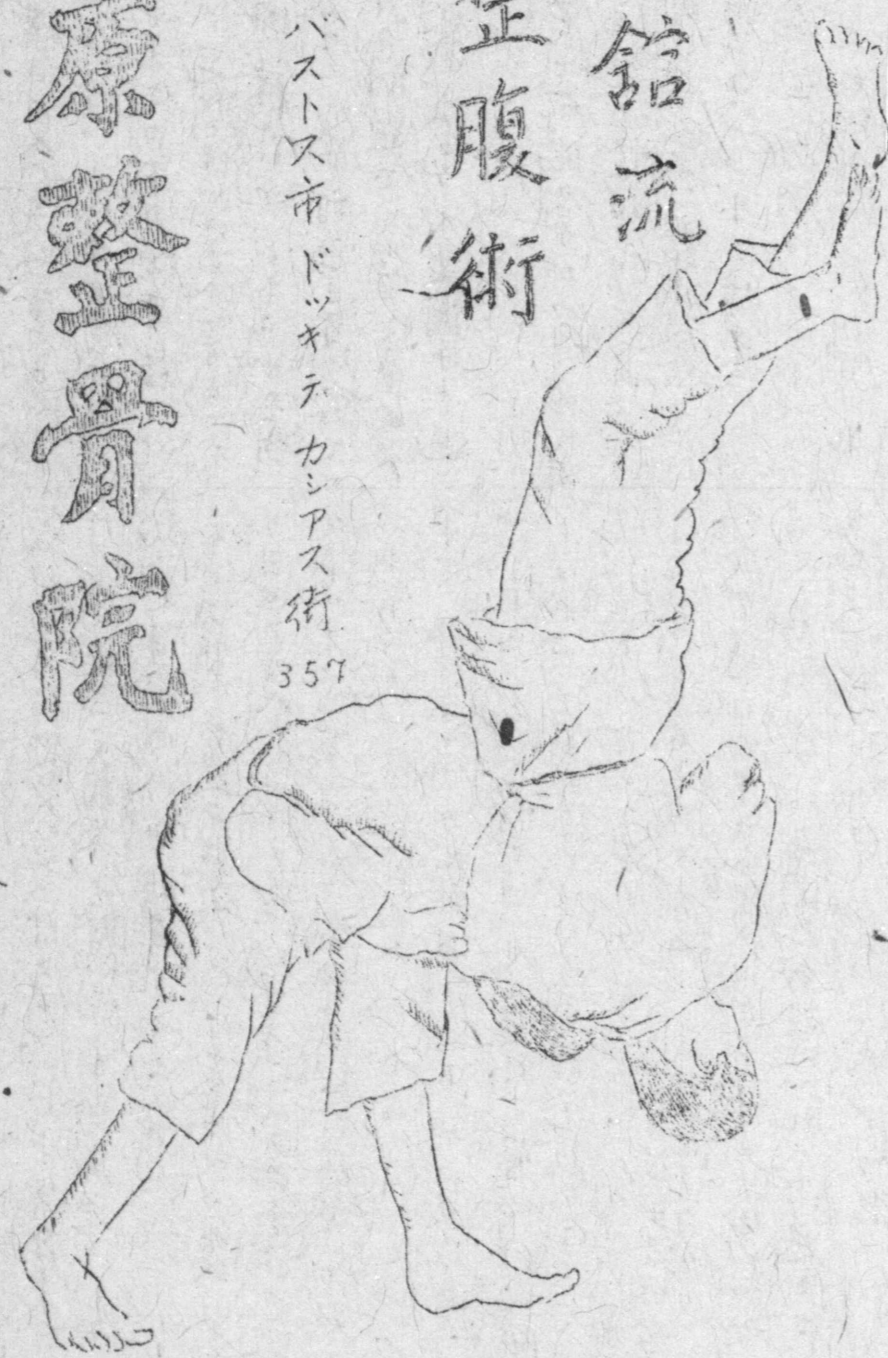 舘流
整腹術
バストス市 ドッキデ カシアス街 357
原整骨院